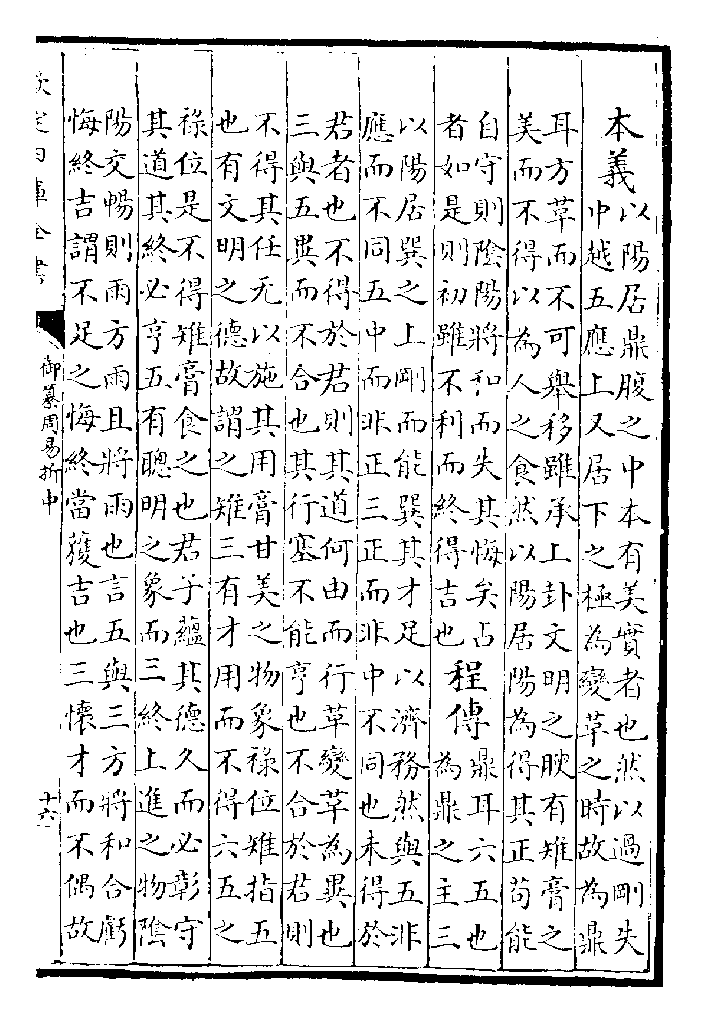 本義以陽居鼎腹之中本有美實者也然以過剛失
中越五應上又居下之極為變革之時故為鼎
耳方革而不可舉移雖承上卦文明之腴有雉膏之
美而不得以為人之食然以陽居陽為得其正苟能
自守則陰陽將和而失其悔矣占
者如是則初雖不利而終得吉也
程傳鼎耳六五也
為鼎之主三
以陽居巽之上剛而能巽其才足以濟務然與五非
應而不同五中而非正三正而非中不同也未得於
君者也不得於君則其道何由而行革變革為異也
三與五異而不合也其行塞不能亨也不合於君則
不得其任无以施其用膏甘美之物象祿位雉指五
也有文明之德故謂之雉三有才用而不得六五之
祿位是不得雉膏食之也君子蘊其德久而必彰守
其道其終必亨五有聰明之象而三終上進之物陰
陽交暢則雨方雨且將雨也言五與三方將和合虧
悔終吉謂不足之悔終當獲吉也三懷才而不偶故
欽定四庫全書
御纂周易折中
十六